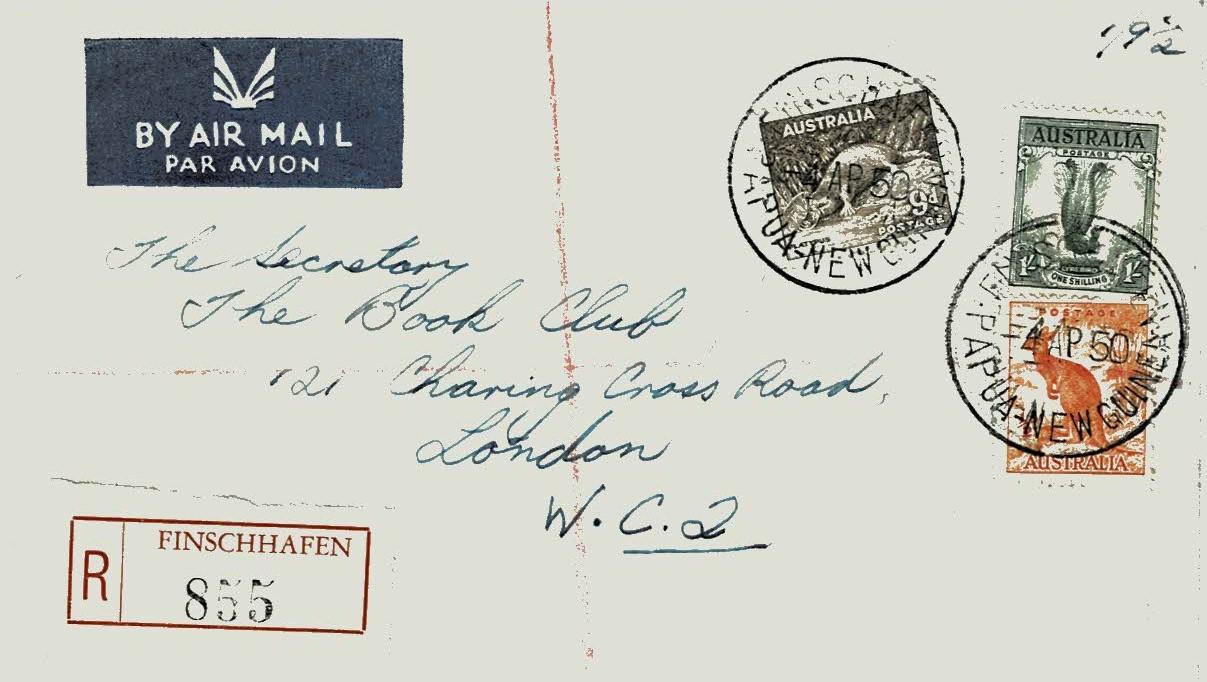 19½
BY AIR MAIL
PAR AVION
AUSTRALIA
9d
POSTAGE
4 AP 50
PAPUA-NEW GUINEA
AUSTRALIA
POSTAGE
1/- 1/-
ONE SHILLING
POSTAGE
4 AP 50
PAPUA-NEW GUINEA
AUSTRALIA
The Secretary
The Book Club
121 Charing Cross Road,
London
W.C.2
R FINSCHHAFEN
855